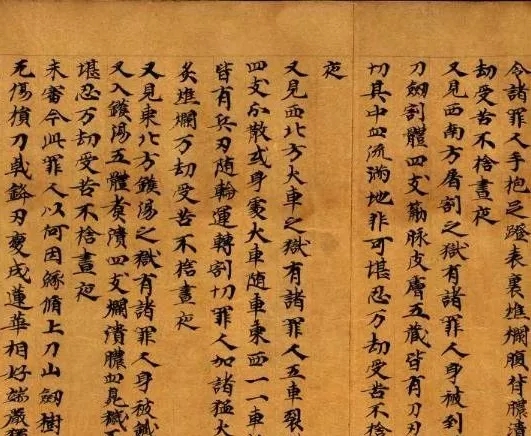 令諸罪人手抱足蹬表裏燋爛腹背膿潰
劫受苦不捨晝夜
又見西南方屠割之獄有諸罪人身被
刀劒割體四支筋脉皮膚五蔵皆有刀刃
切其中血流滿地非可堪忍万劫受苦不捨
夜
又見西北方火車之獄有諸罪人五車裂
四支分散或身處火車隨車東西一一車
皆有兵刃随輪運轉割切罪人加諸猛火
炙燋爛万劫受苦不捨晝夜
又見東北方鑊湯之獄有諸罪人身被
又入鑊湯五體煮潰四支爛潰膿血見
堪忍万劫受苦不捨晝夜
未審今此罪人以何因緣脩上刀山劒樹
无傷損刀戟鋒刃變成蓮華相好端嚴